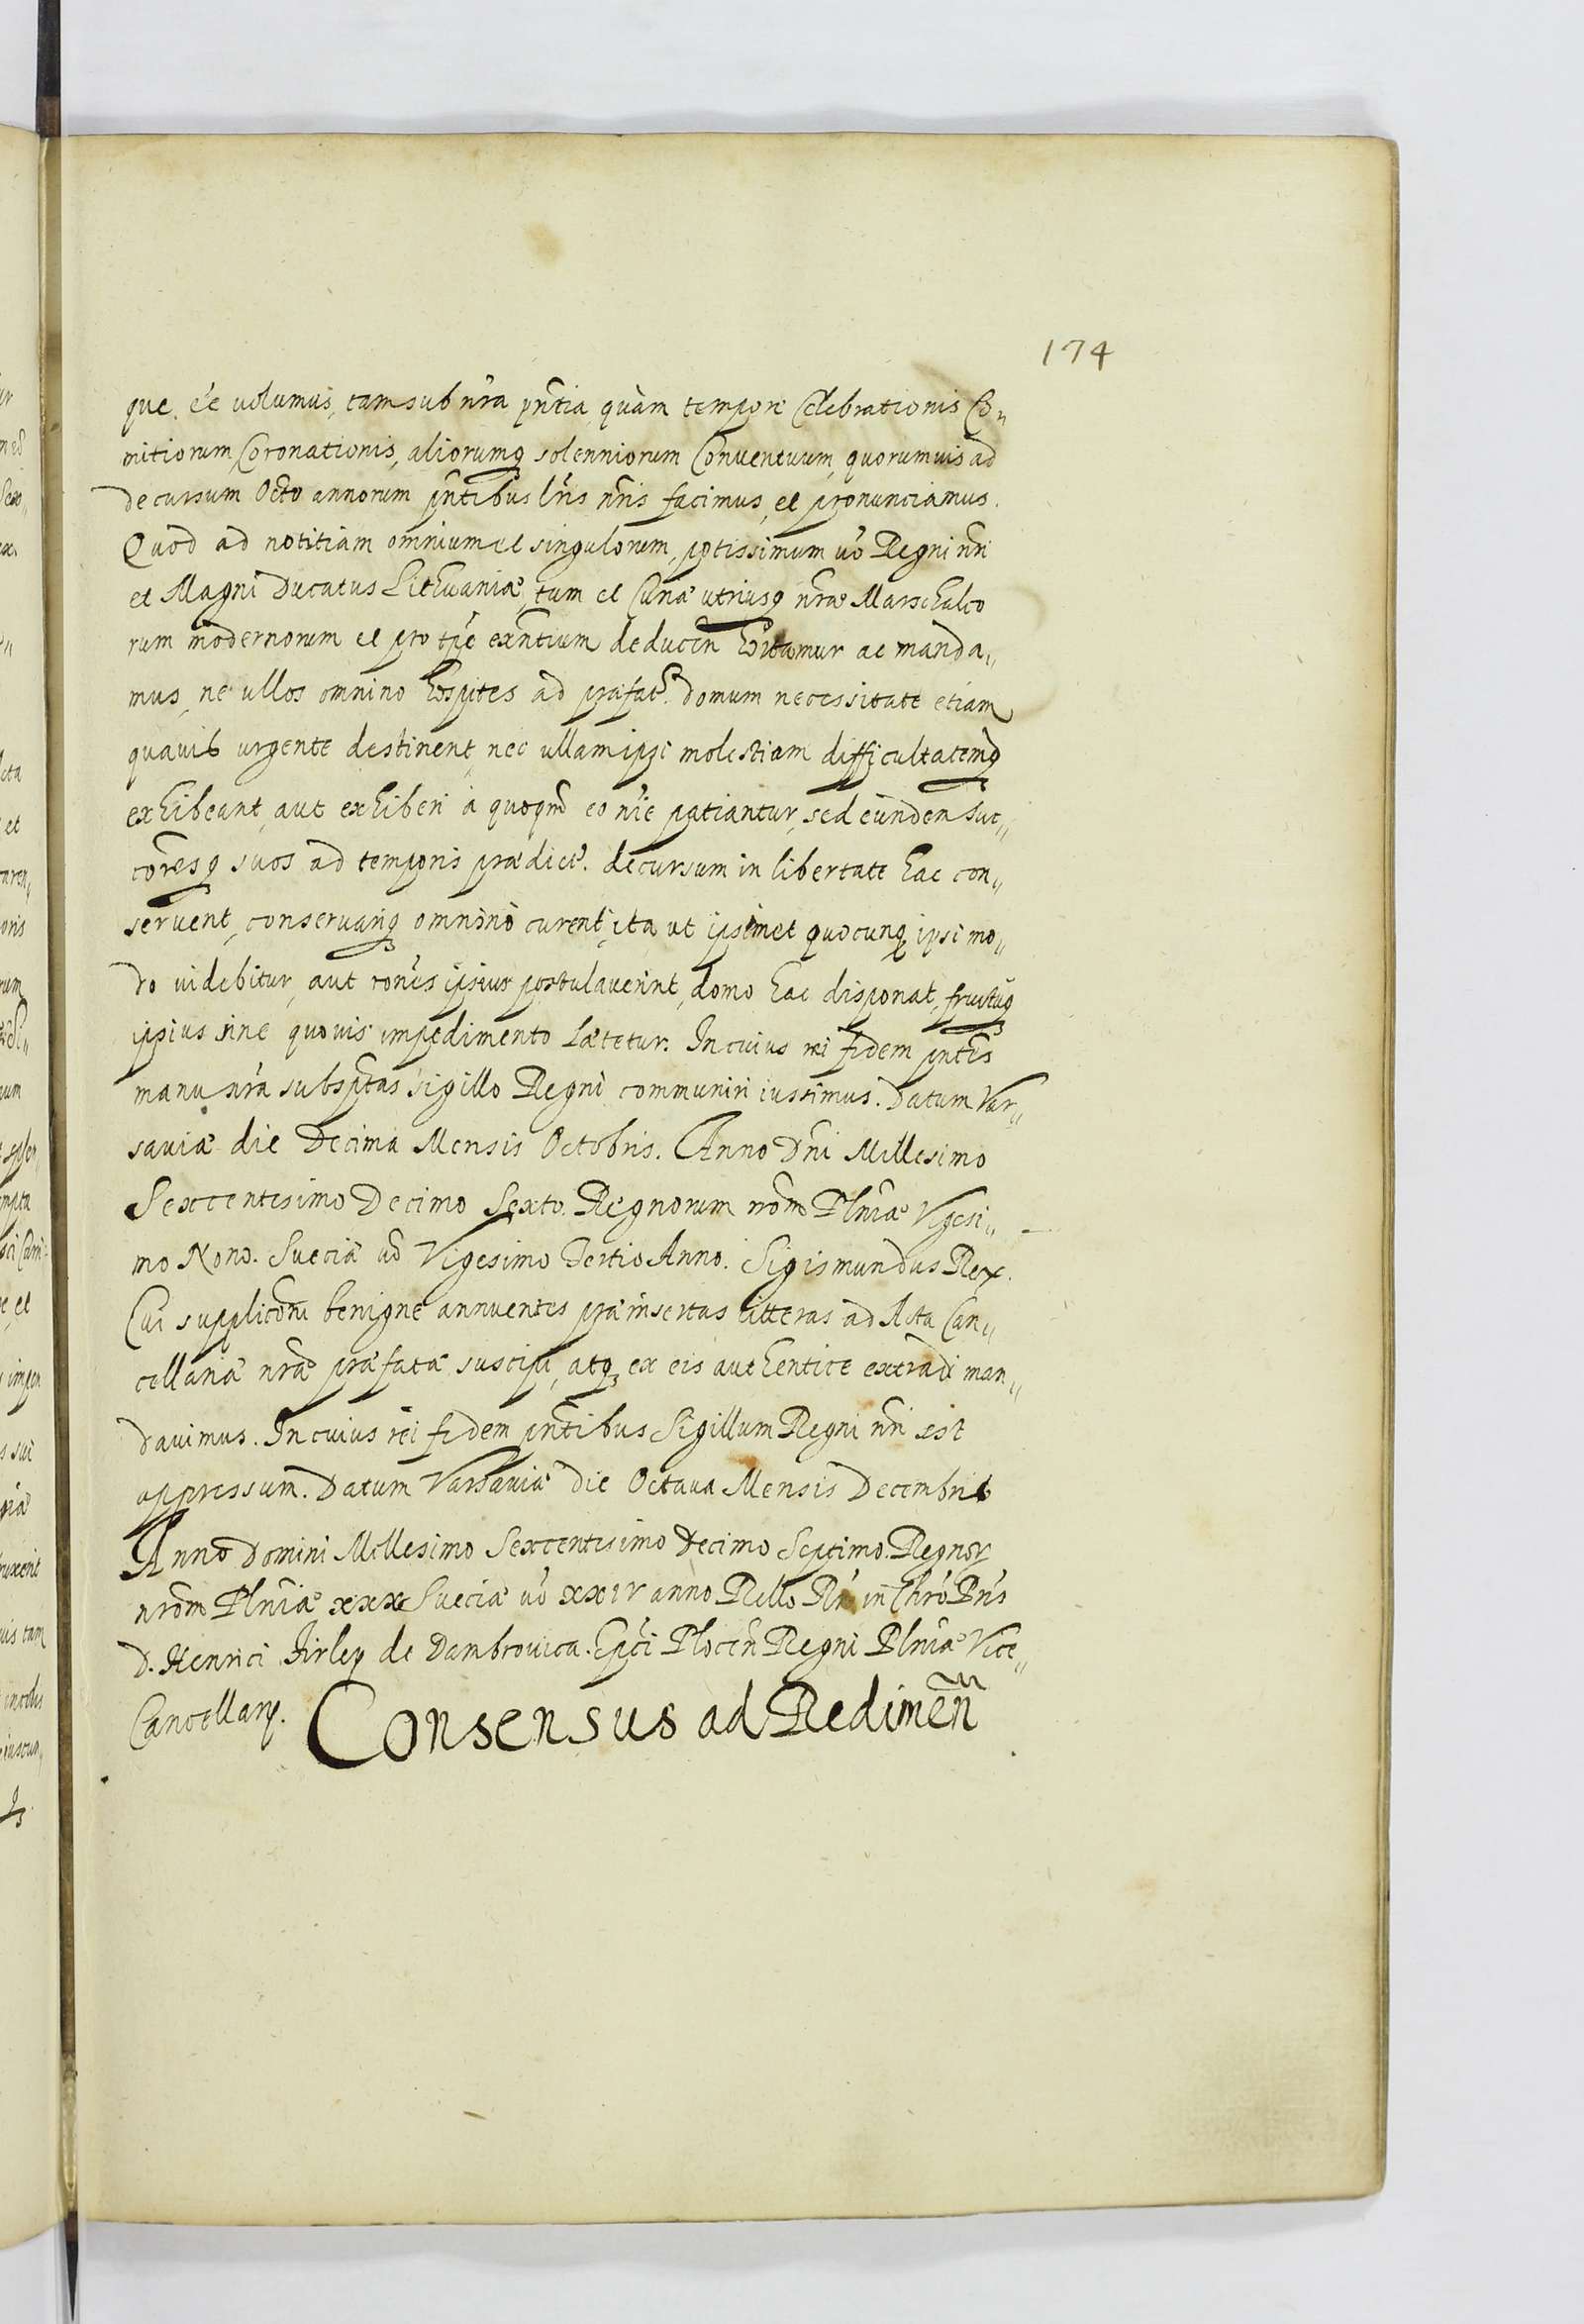 174
que ee volumus, tam sub nra pntia quàm tempore Celebrationis Co„
mitiorum, Coronationis, aliorumq solenniorum Conventuum, quorumvis ad
decursum Octo annorum pntibus lris nris facimus, et pronunciamus.
Quod ad notitiam omnium et singulorum, potissimum vo Regni nri
et Magni Ducatus Lithuaniæ, tum et Curiæ utriusq nræ Marschalco
rum modernorum et pro tpe exntium deducen hortamur ac manda„
mus, ne ullos omnino hospites ad præfat. domum necessitate etiam
quavis urgente destinent, nec ullam ipsi molestiam difficultatemq
exhibeant, aut exhiberi à quoqm eo nie patiantur, sed eundem suc„
coresq suos ad temporis prædict. decursum in libertate hac con„
servent, conservariq omnino curent, ita ut ipsimet quocunq ipsi mo„
do videbitur, aut rones ipsius postulaverint, domo hac disponat, fructuq
ipsius sine quovis impedimento lætetur. In cuius rei fidem pntes
manu nra subsptas sigillo Regni communiri iussimus. Datum Var„
saviæ die Decima Mensis Octobris. Anno Dni Millesimo
Sexcentesimo Decimo Sexto. Regnorum nrom Plniæ Vigesi„
mo Nono. Sueciæ vo Vigesimo Tertio Anno. Sigismundus Rex.
Cui supplicõni benigne annuentes præinsertas litteras ad Acta Can„
cellariæ nræ præfatæ suscipi, atq ex eis authentice extradi man„
davimus. In cuius rei fidem pntibus Sigillum Regni nri est
appressum. Datum Varsaviæ die Octava Mensis Decembris
Anno Domini Millesimo Sexcentesimo Decimo Septimo. Regnor
nrom Plniæ xxx Sueciæ vo xxiv anno Rello Rn in Chro Pris
D. Henrici Firley de Dambrovica. Epci Plocen Regni Plniæ Vice„
Cancellarij. Consensus ad Redimen